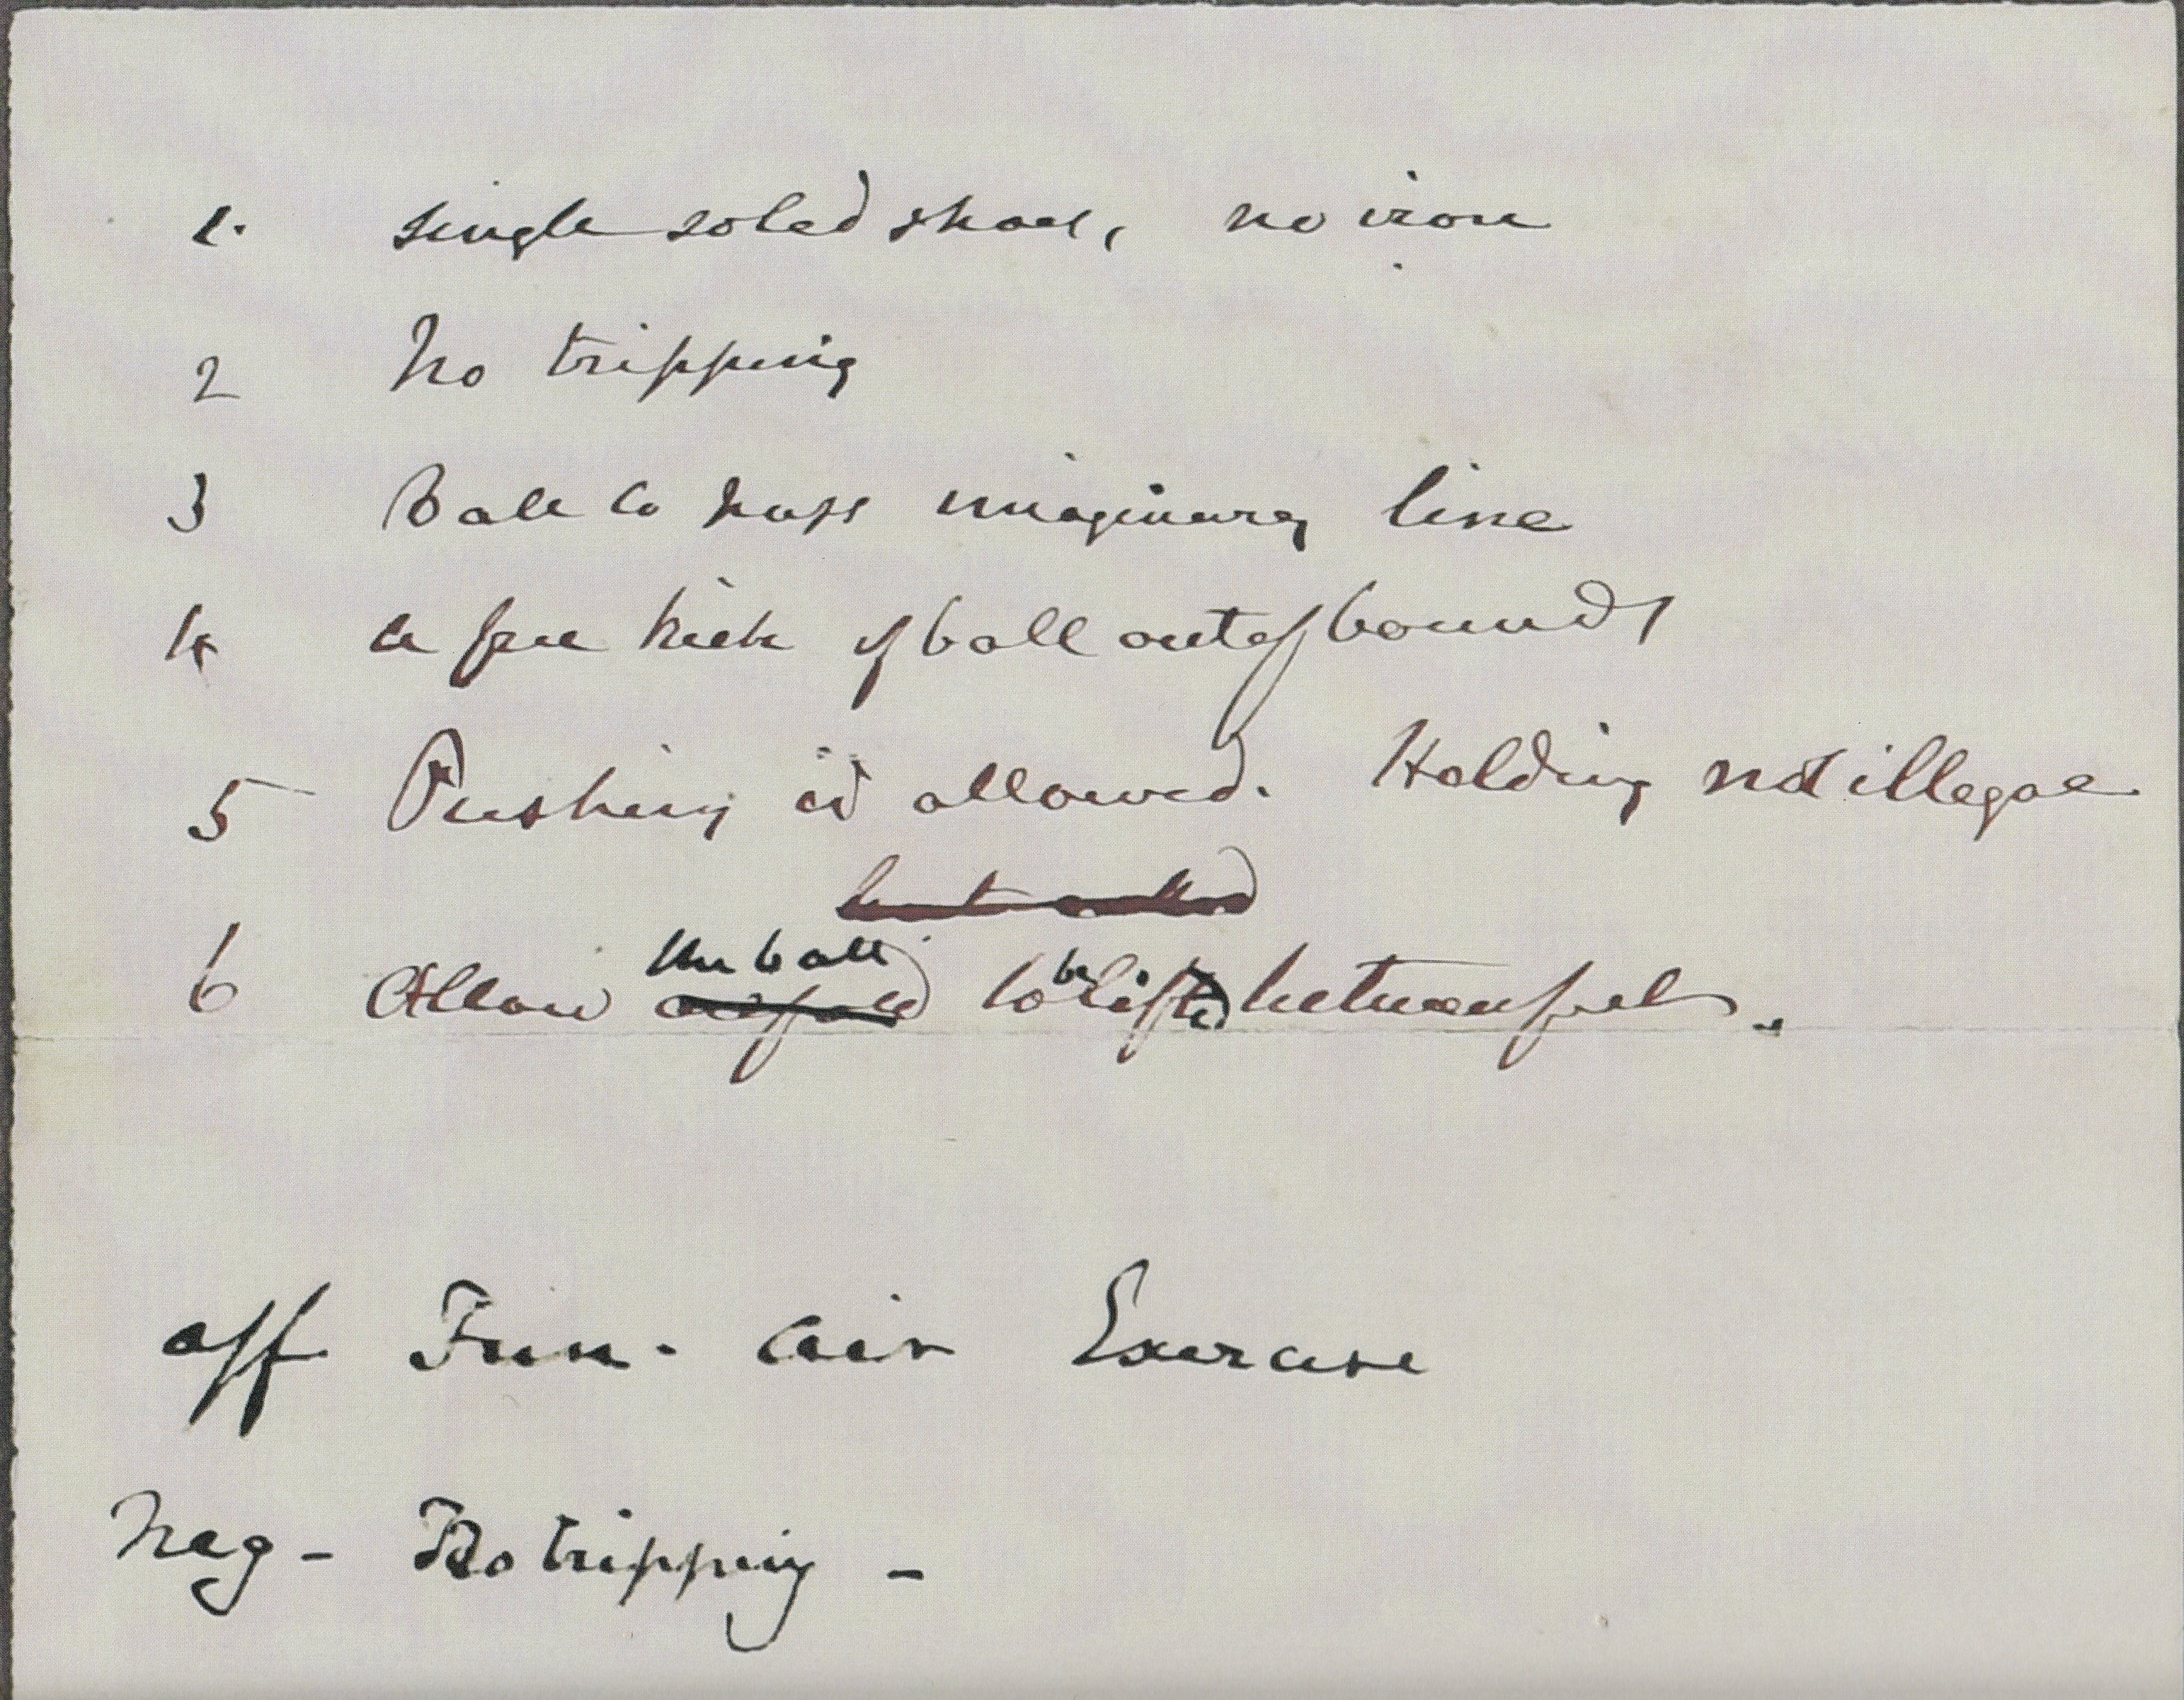 1. single soled shoes, no iron
2 No tripping
3 Ball to pass imaginary line
4 a free kick if ball out of bounds
5 Pushing is allowed. Holding not illegal
the ball be
6 Allow to lifted between feet.
aff Fun. air Exercise
Neg - No tripping -